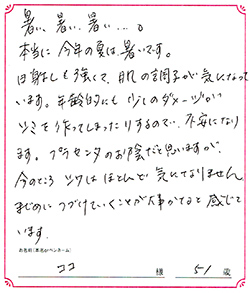 暑い、暑い、暑い…。
本当に今年の夏は、暑いです。
日射しも強くて、肌の調子が気になって
います。年齢的にも少しのダメージが
シミを作ってしまったりするので、不安になり
ます。プラセンタのお陰だと思いますが、
今のところシワはほとんど気になりません。
まじめにつづけていくことが大事かなと感じて
います。
お名前(匿名かペンネーム)
ココ 様 51歳